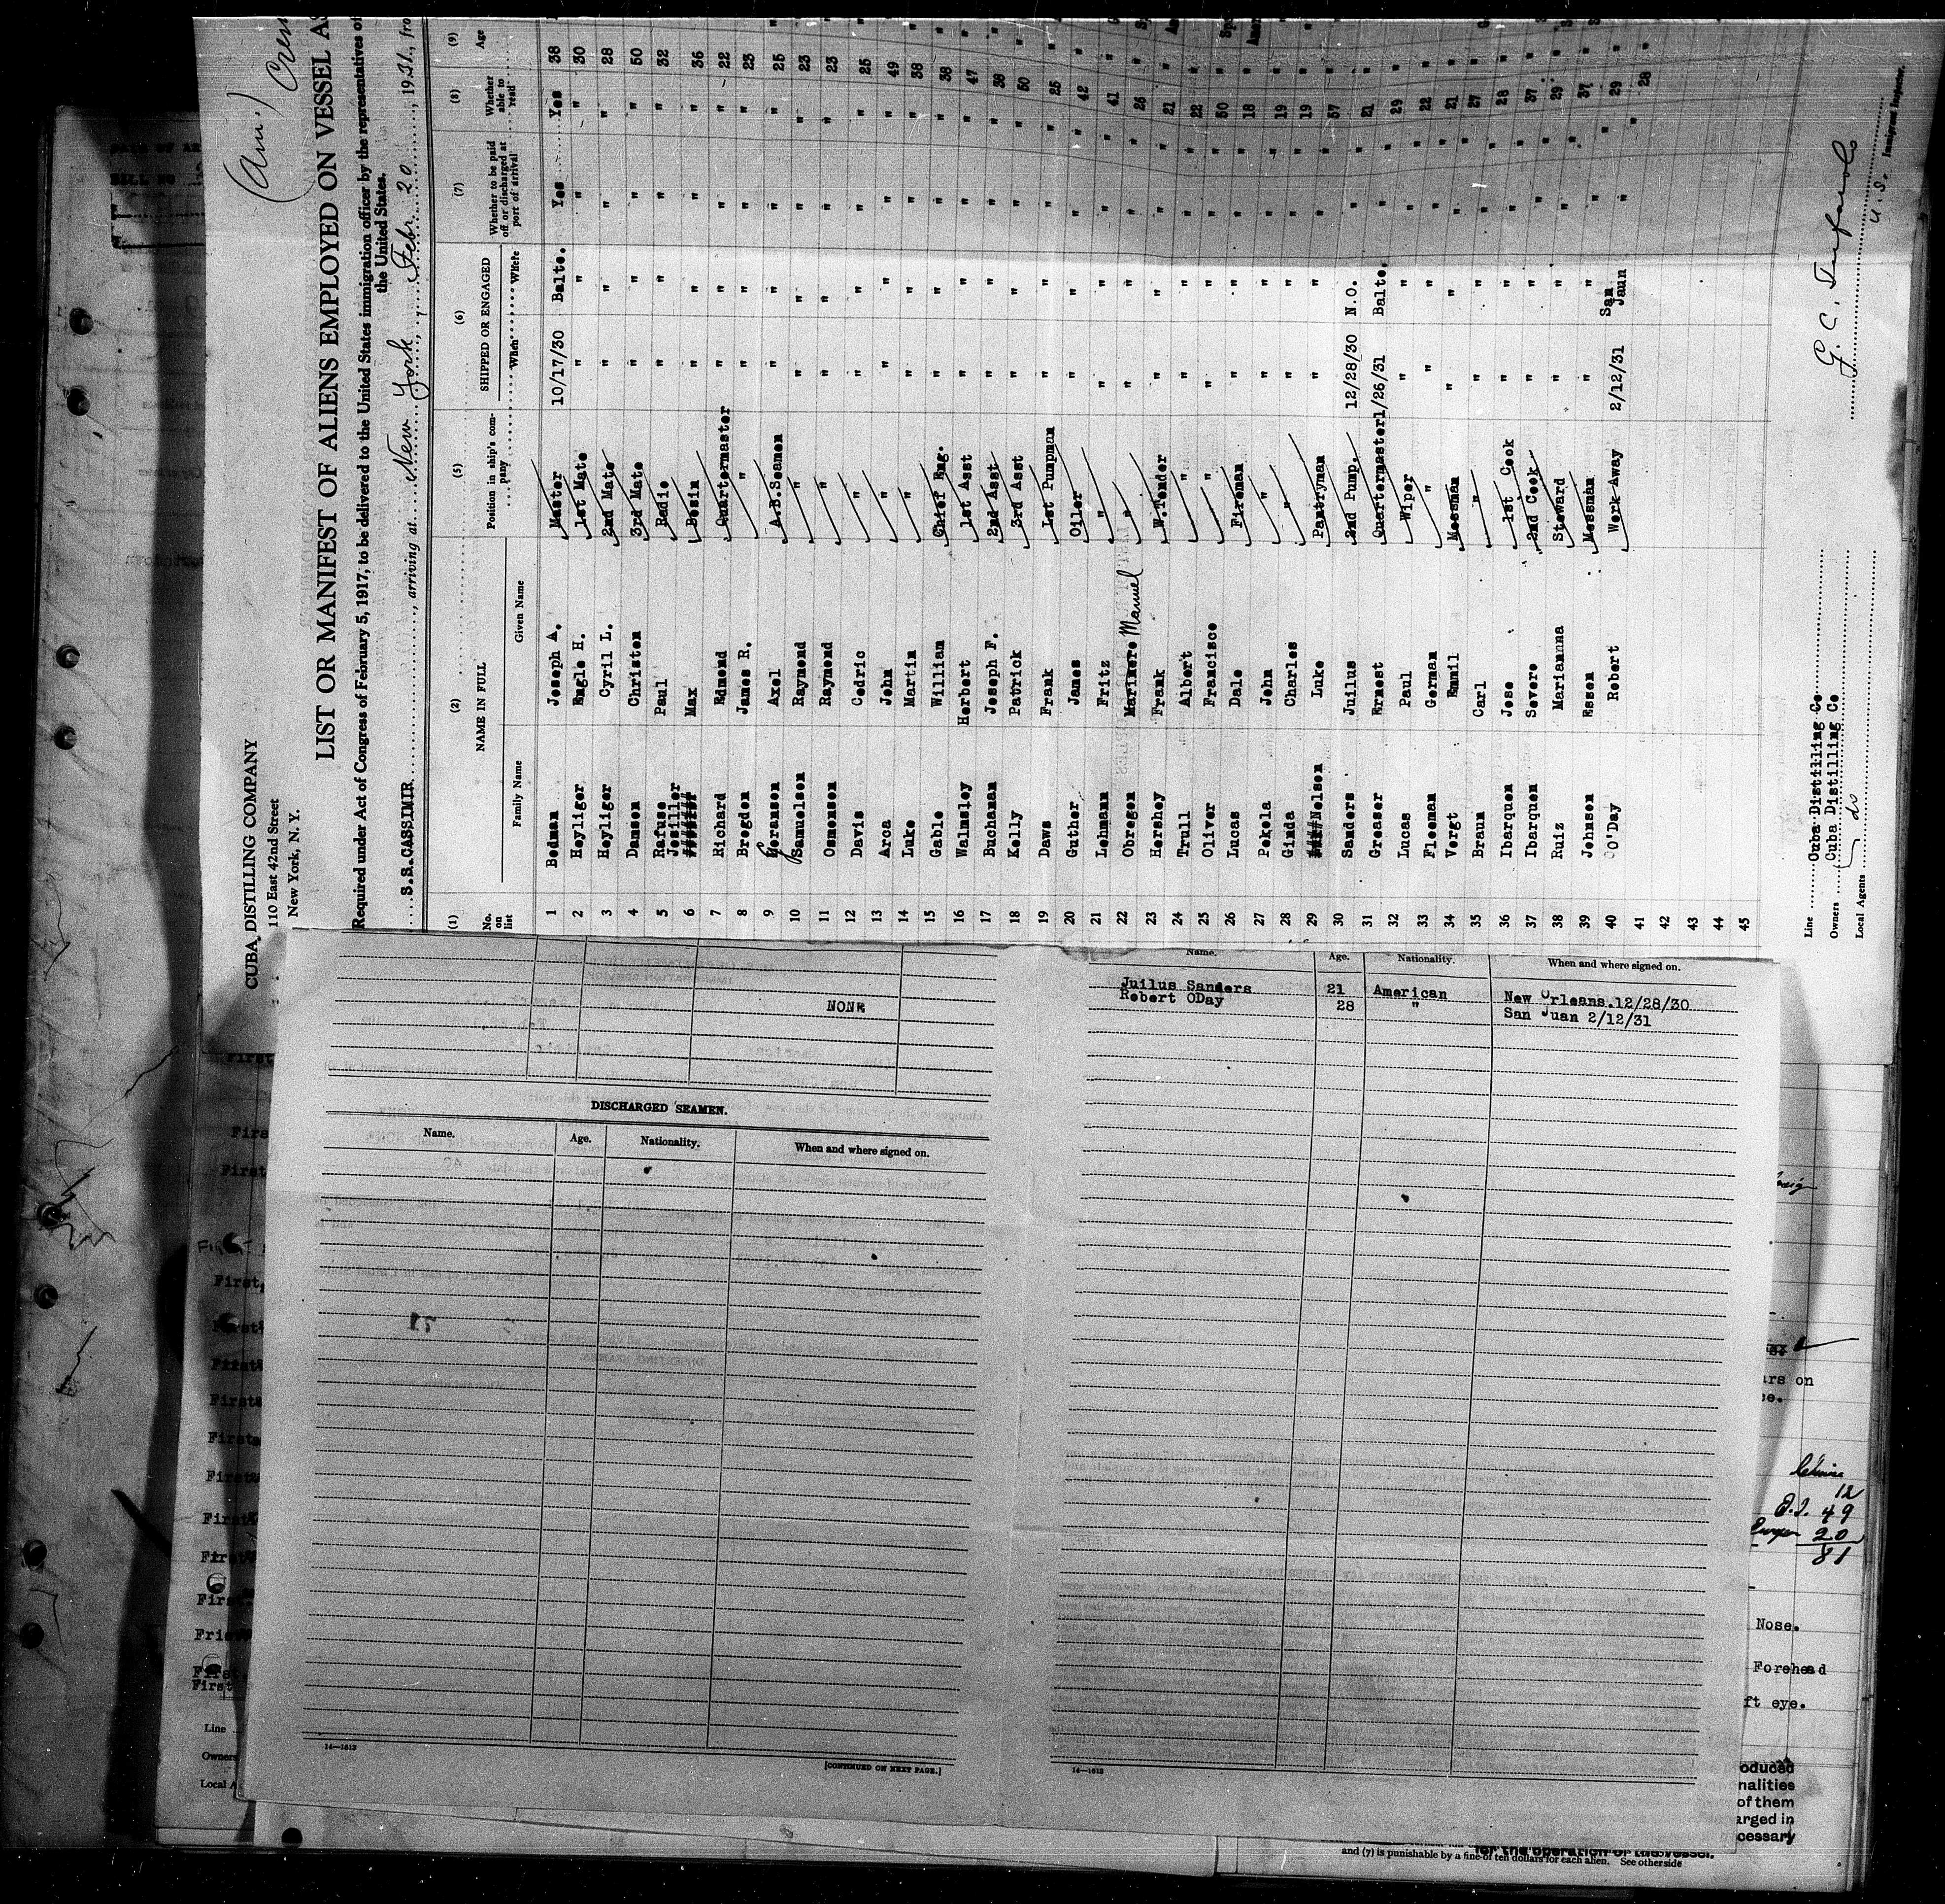 (Am.) Crew
CUBA DISTILLING COMPANY
110 East 42nd Street
New York, N. Y.
LIST OR MANIFEST OF ALIENS EMPLOYED ON VESSEL AS
Required under Act of Congress of February 5, 1917, to be delivered to the United States immigration officer by the representatives of
the United States.
S.S. CASSIMIR, arriving at New York, Febr 20, 1931, fro
(1) (2) (5) (6) (7) (8) (9)
No. on list NAME IN FULL Position in ship's company SHIPPED OR ENGAGED Whether to be paid off or discharged at port of arrival Whether able to read Age
Family Name Given Name When Where
1 Bodman Joseph A. Master 10/17/30 Balto. Yes Yes 38
2 Heyliger Engle H. 1st Mate " " " " 30
3 Heyliger Cyril L. 2nd Mate " " " " 28
4 Dansen Christen 3rd Mate " " " " 50
5 Rafuse Paul Radio " " " " 32
6 Jesiller Max Bosin " " " " 36
7 Richard Edmond Quartermaster " " " " 22
8 Brogden James R. " " " " " 23
9 Goranson Axel A.B.Seamen " " " " 25
10 Samuelson Raymond " " " " " 23
11 Osmonson Raymond " " " " " 23
12 Davis Cedric " " " " " 25
13 Arca John " " " " " 49
14 Luke Martin " " " " " 38
15 Gable William Chief Eng. " " " " 38
16 Walmsley Herbert 1st Asst " " " " 47
17 Buchanan Joseph F. 2nd Asst " " " " 38
18 Kelly Patrick 3rd Asst " " " " 50
19 Daws Frank 1st Pumpman " " " " 25
20 Guther James Oiler " " " " 42
21 Lehmann Fritz " " " " " 41
22 Obregon Marimere Manuel " " " " " 26
23 Hershey Frank W.Tender " " " " 21
24 Trull Albert " " " " " 22
25 Oliver Francisco " " " " " 50
26 Lucas Dale Fireman " " " " 18
27 Pokela John " " " " " 19
28 Ginda Charles " " " " " 19
29 Nelson Luke Pantryman " " " " 57
30 Sanders Juilus 2nd Pump. 12/28/30 N.O. " " 21
31 Grosser Ernest Quartermaster 1/26/31 Balto. " " 29
32 Lucas Paul Wiper " " " " 22
33 Fleenan German " " " " " 21
34 Vorgt Emmil Messman " " " " 27
35 Braun Carl " " " " " 28
36 Ibarquen Jose 1st Cook " " " " 37
37 Ibarquen Severo 2nd Cook " " " " 29
38 Ruiz Marianna Steward " " " " 37
39 Johnson Essen Messman " " " " 29
40 O'Day Robert Work Away 2/12/31 San Jaun " " 28
41
42
43
44
45
Line Cuba Distilling Co
Owners Cuba Distilling Co
Local Agents do
U. S. Immigrant Inspector.
NONE
DISCHARGED SEAMEN.
Name. Age. Nationality. When and where signed on.
14—1613
[CONTINUED ON NEXT PAGE.]
Name. Age. Nationality. When and where signed on.
Juilus Sanders 21 American New Orleans.12/28/30
Robert ODay 28 " San Juan 2/12/31
14—1613
First
First
First
First
First
First
First
First
Line
Owners
Local A
rs on
ce.
12
49
20
81
Nose.
Forehead
ft eye.
oduced
nalities
of them
arged in
cessary
for the operation of the vessel.
and (7) is punishable by a fine of ten dollars for each alien. See other side